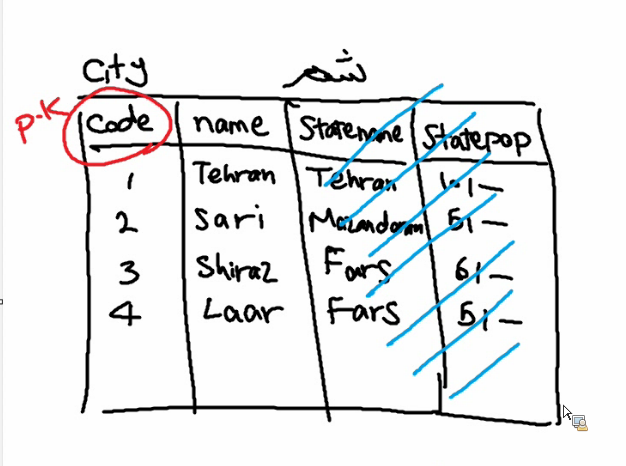 City شهر
P.K
Code name Statename Statepop
1 Tehran Tehran
2 Sari Mazandaran 5,—
3 Shiraz Fars 6,—
4 Laar Fars 5,—